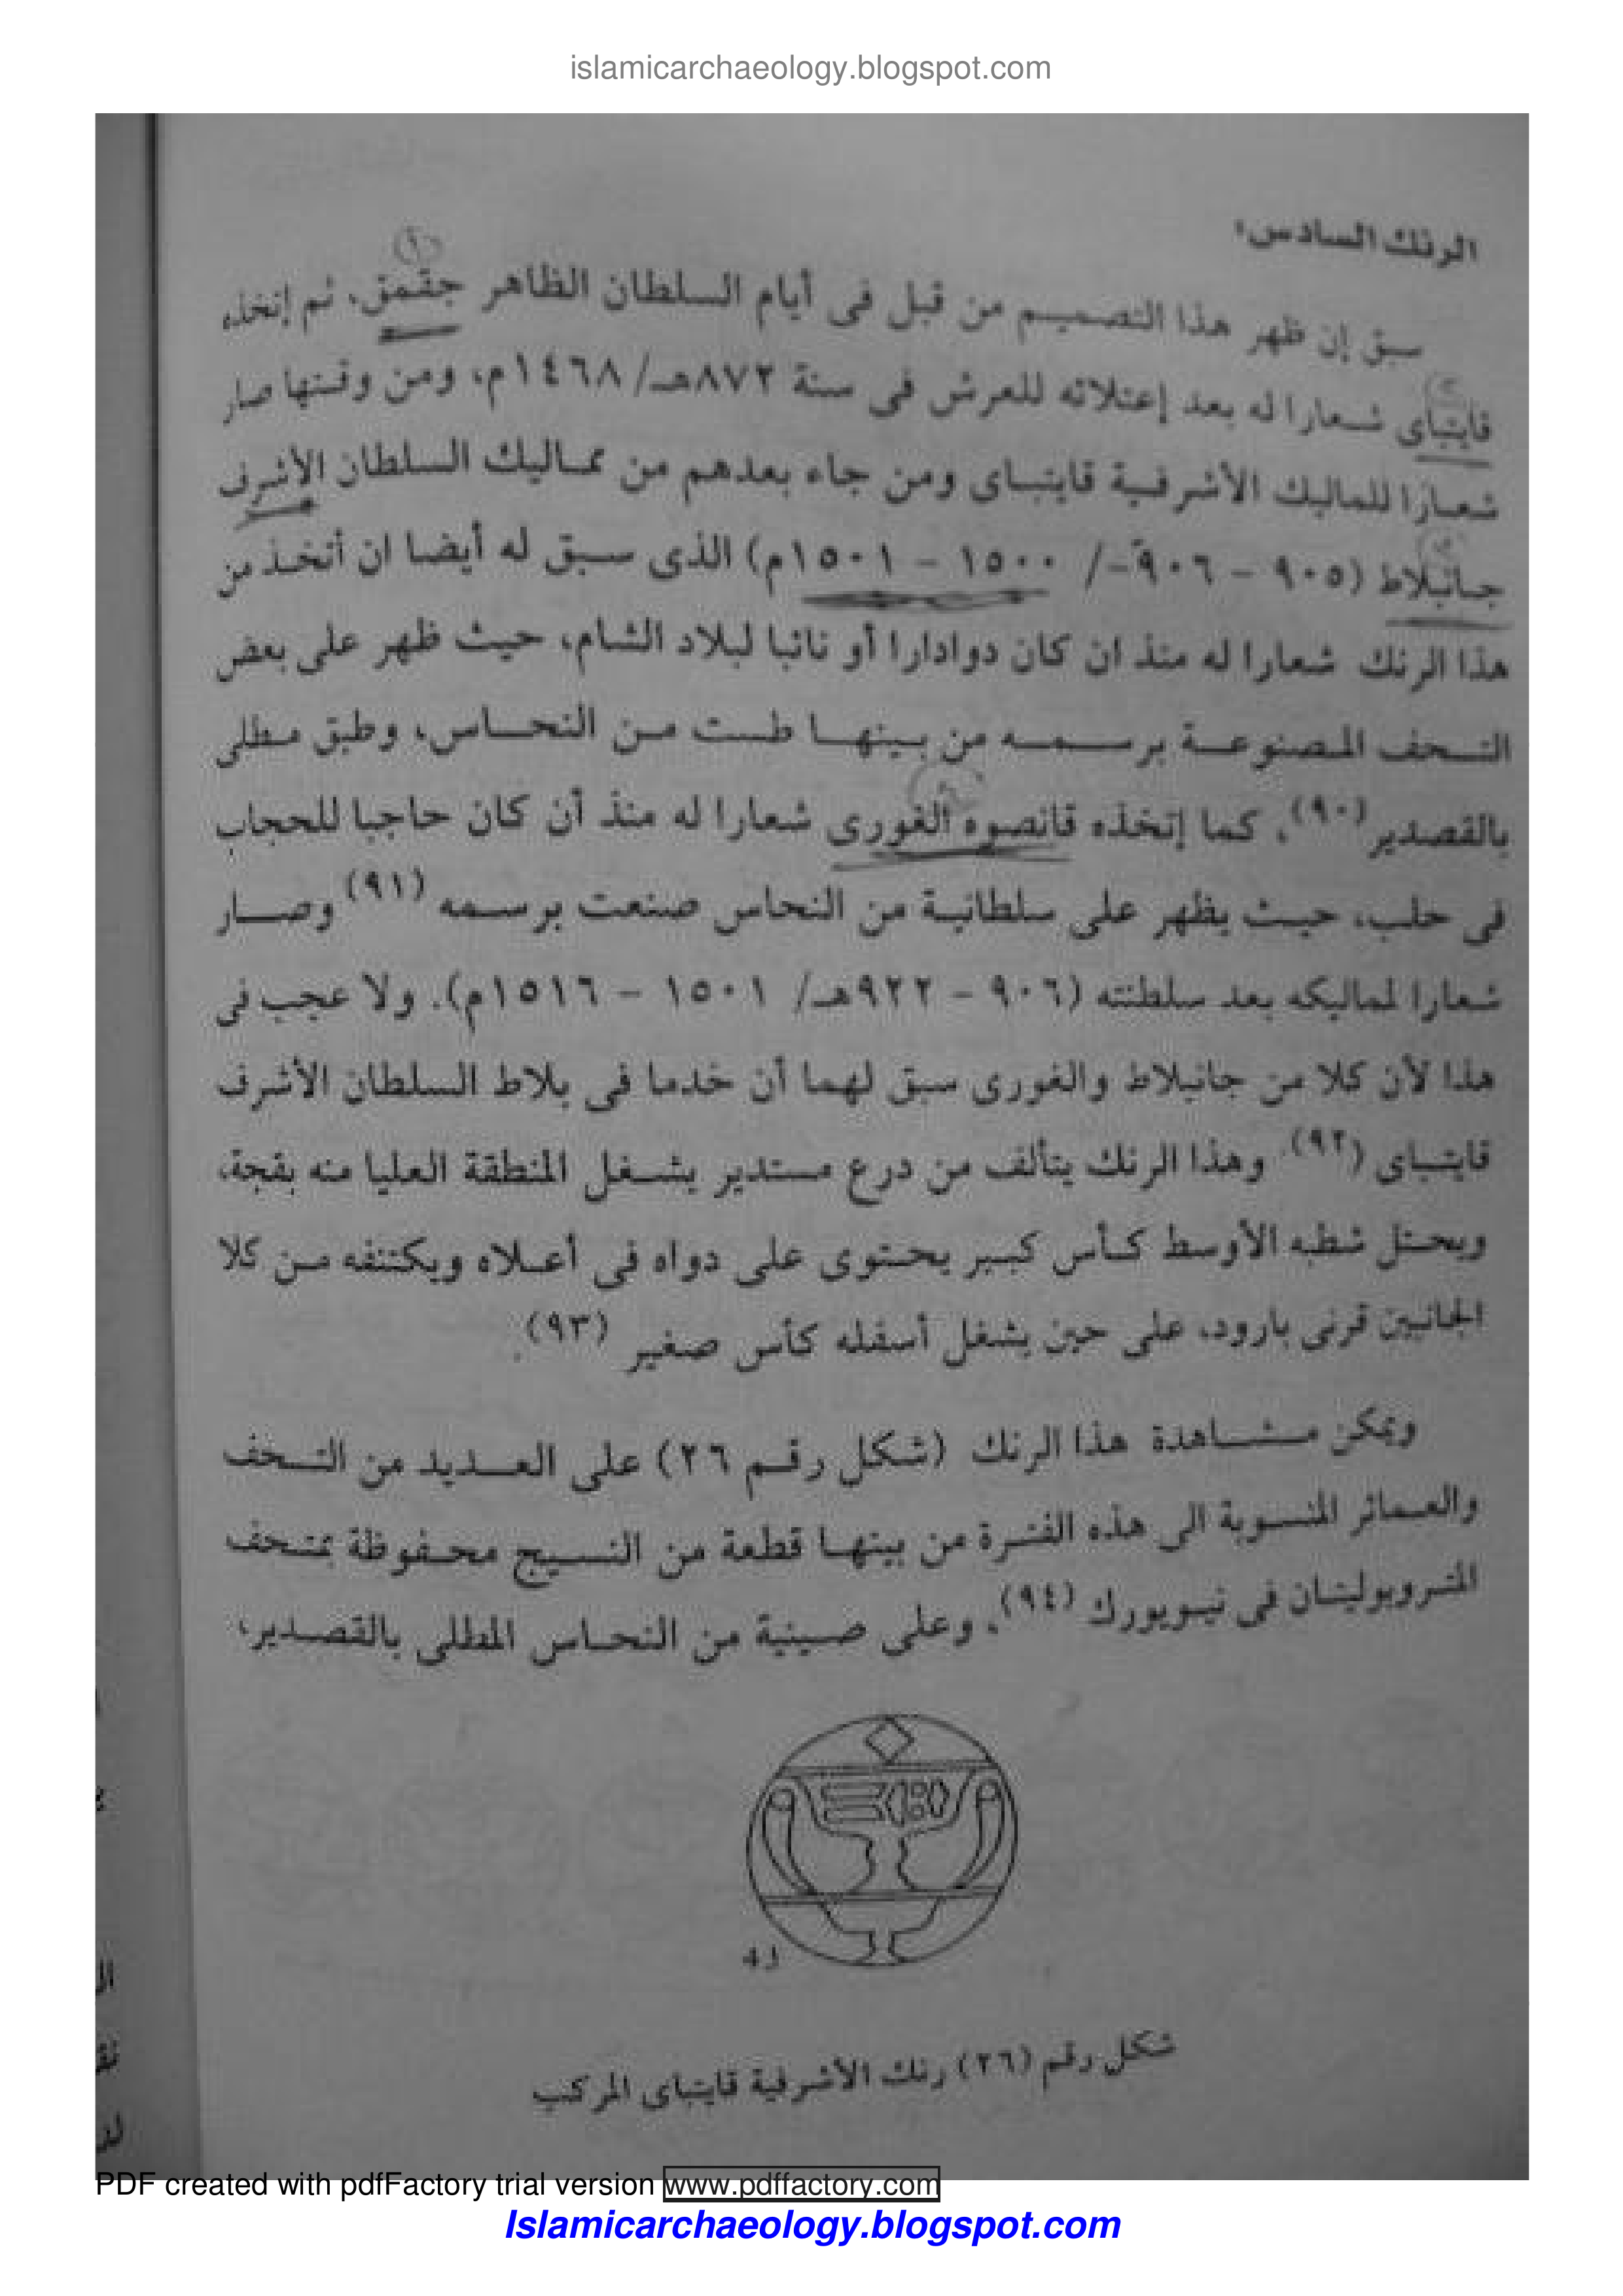 islamicarchaeology.blogspot.com
الرنك السادس:
سبق إن ظهر هذا التصميم من قبل فى أيام السلطان الظاهر جقمق، ثم إتخذه
قايتباى شعارا له بعد إعتلائه للعرش فى سنة ٨٧٢هـ/ ١٤٦٨م، ومن وقتها صار
شعارا للماليك الأشرفية قايتباى ومن جاء بعدهم من مماليك السلطان الأشرف
جانبلاط (٩٠٥ - ٩٠٦هـ/ ١٥٠٠ - ١٥٠١م) الذى سبق له أيضا ان أتخذ من
هذا الرنك شعارا له منذ ان كان دوادارا أو نائبا لبلاد الشام، حيث ظهر على بعض
التحف المصنوعة برسمه من بينها طست من النحاس، وطبق مطلى
بالقصدير (٩٠)، كما إتخذه قانصوه الغورى شعارا له منذ أن كان حاجبا للحجاب
فى حلب، حيث يظهر على سلطانية من النحاس صنعت برسمه (٩١) وصار
شعارا لمماليكه بعد سلطنته (٩٠٦ - ٩٢٢هـ/ ١٥٠١ - ١٥١٦م). ولا عجب فى
هذا لأن كلا من جانبلاط والغورى سبق لهما أن خدما فى بلاط السلطان الأشرف
قايتباى (٩٢). وهذا الرنك يتألف من درع مستدير يشغل المنطقة العليا منه بقجة،
ويحتل شطبه الأوسط كأس كبير يحتوى على دواه فى أعلاه ويكتنفه من كلا
الجانبين قرنى بارود، على حين يشغل أسفله كأس صغير (٩٣).
ويمكن مشاهدة هذا الرنك (شكل رقم ٢٦) على العديد من التحف
والعمائر المنسوبة الى هذه الفترة من بينها قطعة من النسيج محفوظة بمتحف
المتروبوليتان فى نيويورك (٩٤)، وعلى صينية من النحاس المطلى بالقصدير،
شكل رقم (٢٦) رنك الأشرفية قايتباى المركب
PDF created with pdfFactory trial version www.pdffactory.com
Islamicarchaeology.blogspot.com